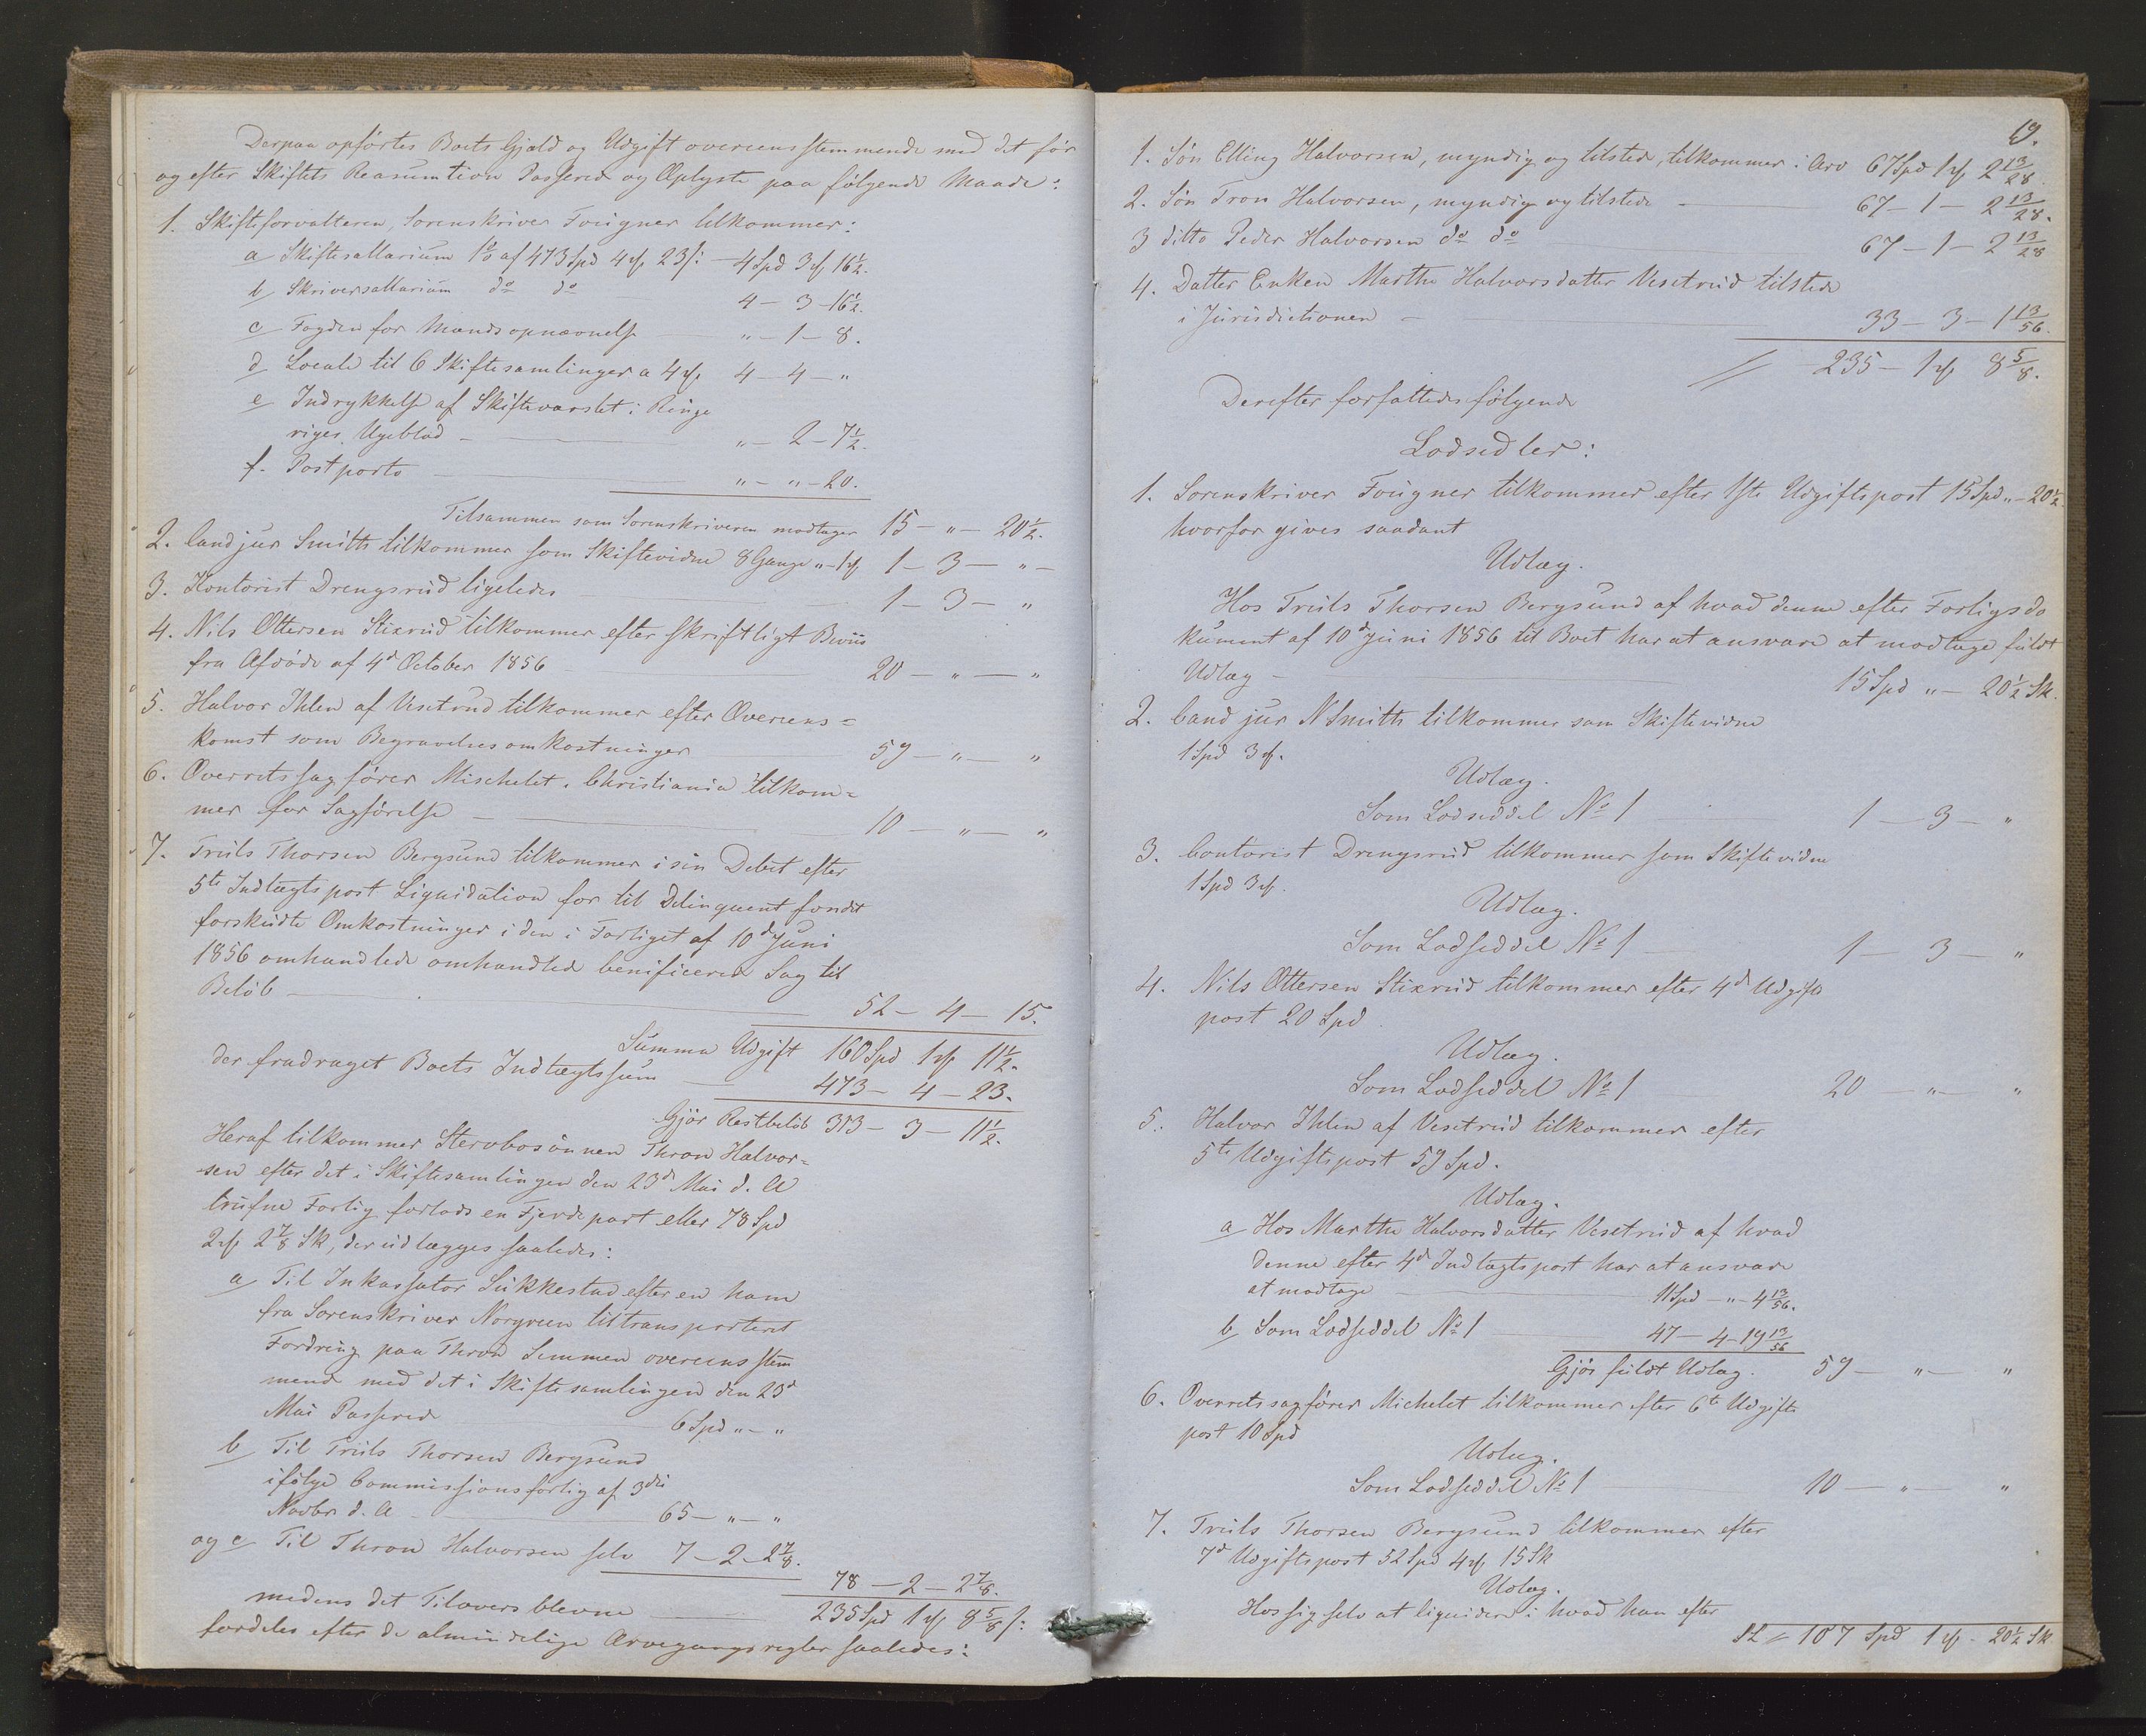 Derpaa opførtes Boets Gjæld og Udgift overeensstemmende med det før
og efter Skiftets Reasumtion Passered og Oplyste paa følgende Maade:
1. Skifteforvalteren, Sorenskriver Fougner tilkommer:
a Skiftesallarium 1% af 473 Spd 4 ₰ 23 s: — 4 Spd 3 ₰ 16½.
b Skriversallarium do do 4 — 3 — 16½.
c Fogden for Mandsopnævnelse „ — 1 — 8.
d Locale til 6 Skiftesamlinger a 4 ₰ 4 — 4 — „
e Indrykkelse af Skiftevarslet i Ringe
riges Ugeblad — „ — 2 — 7½.
f. Postporto „ — „ — 20.
Tilsammen som Sorenskriveren modtager 15 — „ — 20½.
2. Cand jur Smith tilkommer som Skiftevidne 8 Gange „ — 1 ₰ 1 — 3 — „ —
3. Kontorist Drengsrud ligeledes 1 — 3 — „
4. Nils Ottersen Stixrud tilkommer efter skriftligt Beviis
fra Afdøde af 4d October 1856 20 — „ — „
5. Halvor Ihlen af Vesetrud tilkommer efter Overeens=
komst som Begravelsesomkostninger 59 — „ — „
6. Overretssagfører Mischelet i Christiania tilkom=
mer for Sagførelse — 10 — „ — „
7. Truls Thorsen Bergsund tilkommer i sin Debet efter
5te Indtægtspost Liquidation for til Delinquentfondet
forskudte Omkostninger i den i Forliget af 10d Juni
1856 omhandlede omhandled benificered Sag til
Beløb — 52 — 4 — 15.
Summa Udgift 160 Spd 1 ₰ 11½.
der fradraget Boets Indtægtssum 473 — 4 — 23.
Gjør Restbeløb 313 — 3 — 11½.
Heraf tilkommer Stervbosønnen Thron Halvor=
sen efter det i Skiftesamlingen den 23d Mai d. A
trufne Forlig forlods en Fjerdepart eller 78 Spd
2 ₰ 2⅞ Sk, der udlægges saaledes:
a Til Inkassator Sukkestad efter en ham
fra Sorenskriver Norgreen tiltransporteret
Fordring paa Thron Semmen overeensstem
mend med det i Skiftesamlingen den 23d
Mai Passered 6 Spd „ — „
b Til Truls Thorsen Bergsund
ifølge Commissionsforlig af 3die
Novbr d. A — 65 — „ — „
og c Til Thron Halvorsen selv 7 — 2 — 2⅞.
78 — 2 — 2⅞.
medens det Tiloversblevne 235 Spd 1 ₰ 8⅝ s:
fordeles efter de almindelige Arvegangsregler saaledes:
19.
1. Søn Elling Halvorsen, myndig og tilstede, tilkommer i Arv 67 Spd 1 ₰ 2 13/28.
2. Søn Tron Halvorsen, myndig og tilstede — 67 — 1 — 2 13/28.
3 ditto Peder Halvorsen do do 67 — 1 — 2 13/28
4. Datter Enken Marthe Halvorsdatter Vesetrud tilstede
i Jurisdictionen — 33 — 3 — 1 13/56.
235 — 1 ₰ 8⅝.
Derefter forfattedes følgende
Lodsedler:
1. Sorenskriver Fougner tilkommer efter 1ste Udgiftspost 15 Spd „ — 20½.
hvorfor gives saadant
Udlæg.
Hos Truls Thorsen Bergsund af hvad denne efter Forligsdo
kument af 10d Juni 1856 til Boet har at ansvare at modtage fuldt
Udlæg — 15 Spd „ — 20½ Sk.
2. Cand jur N Smith tilkommer som Skiftevidne
1 Spd 3 ₰.
Udlæg.
Som Lodseddel No 1 1 — 3 — „
3. Contorist Drengsrud tilkommer som Skiftevidne
1 Spd 3 ₰.
Udlæg.
Som Lodseddel No 1 1 — 3 — „
4. Nils Ottersen Stixrud tilkommer efter 4d Udgifts
post 20 Spd
Udlæg.
Som Lodseddel No 1 20 — „ — „
5. Halvor Ihlen af Vesetrud tilkommer efter
5te Udgiftspost 59 Spd.
Udlæg.
a Hos Marthe Halvorsdatter Vesetrud af hvad
denne efter 4d Indtægtspost har at ansvare
at modtage 11 Spd — „ — 4 13/56.
b Som Lodseddel No 1 47 — 4 — 19 13/56
Gjør fuldt Udlæg. 59 — „ — „
6. Overretssagfører Michelet tilkommer efter 6te Udgifts
post 10 Spd
Udlæg.
Som Lodseddel No 1 10 — „ — „
7. Truls Thorsen Bergsund tilkommer efter
7d Udgiftspost 52 Spd 4 ₰ 15 Sk
Udlæg.
Hos sig selv at liquidere i hvad han efter
107 Spd 1 ₰ — 20½ Sk